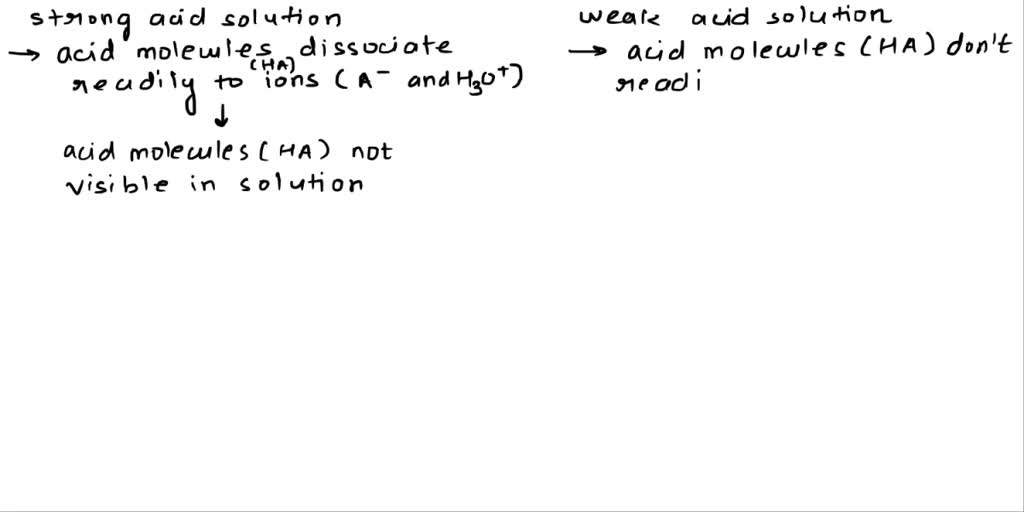 strong acid solution
→ acid molecules dissociate
(HA)
readily to ions (A⁻ and H₃O⁺)
↓
acid molecules (HA) not
visible in solution
weak acid solution
→ acid molecules (HA) don't
readi